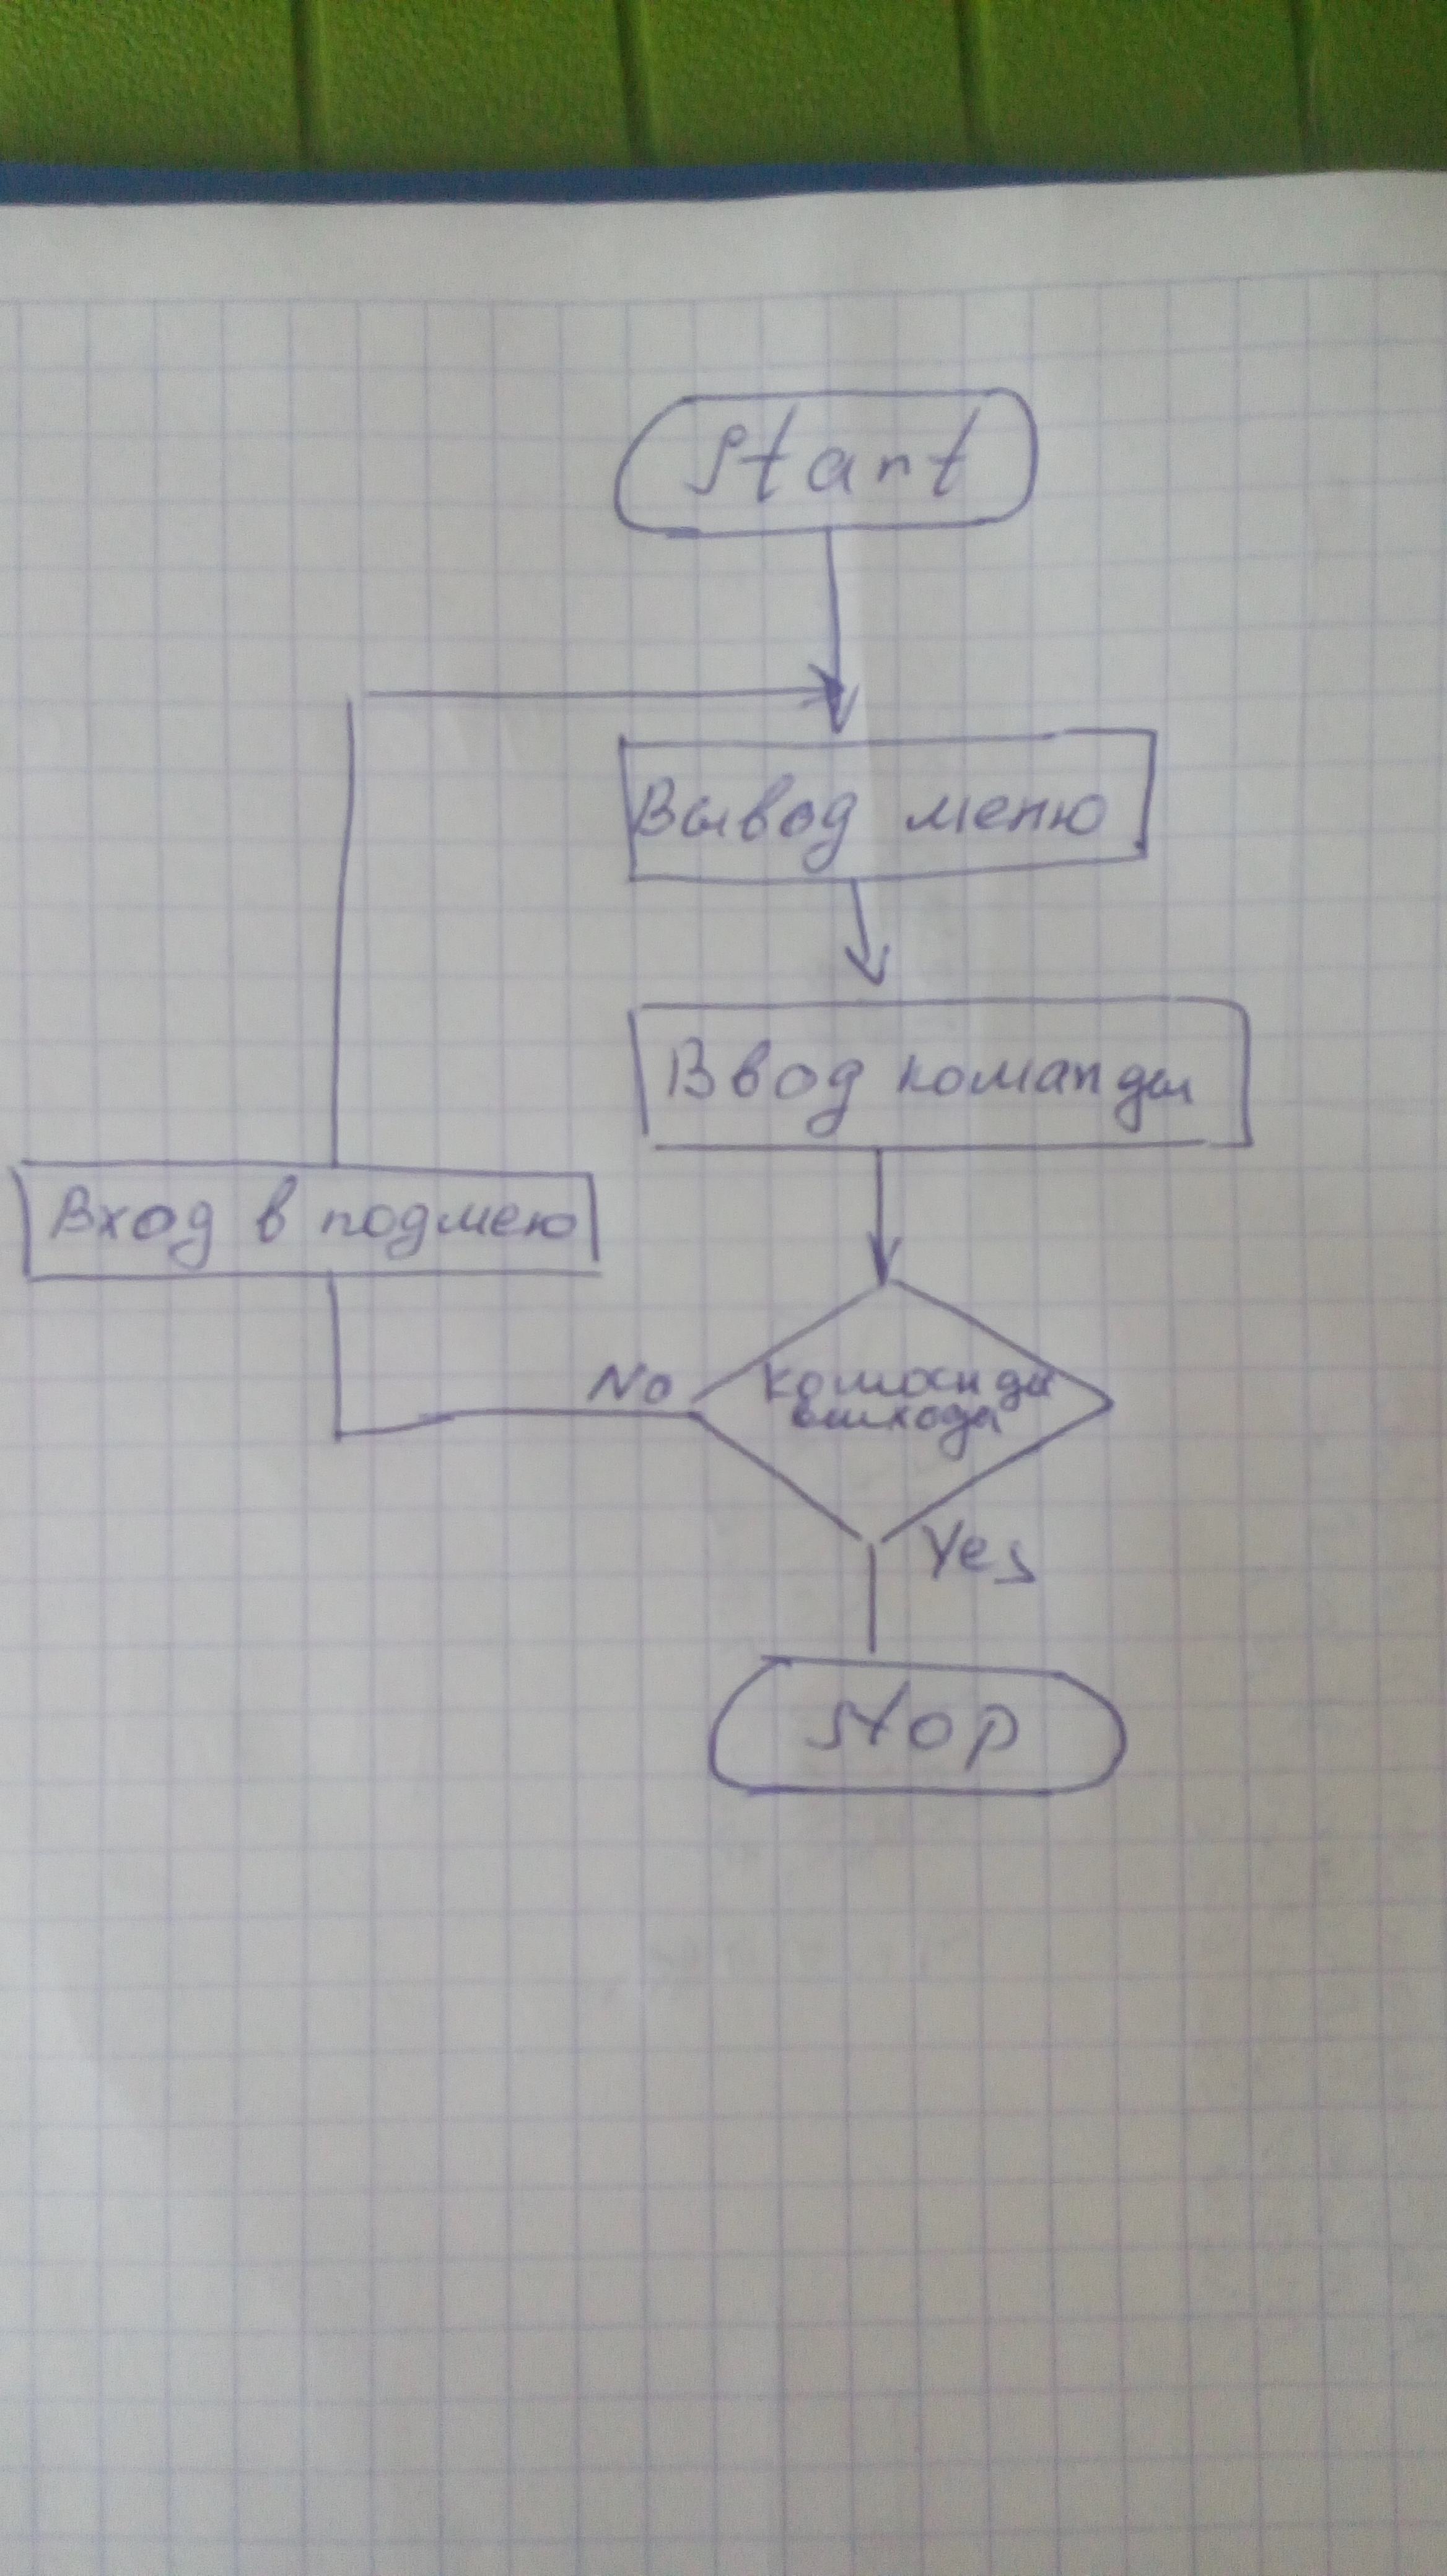 Start
Вывод меню
Ввод команды
Вход в подмею
No
команда
выхода
Yes
stop